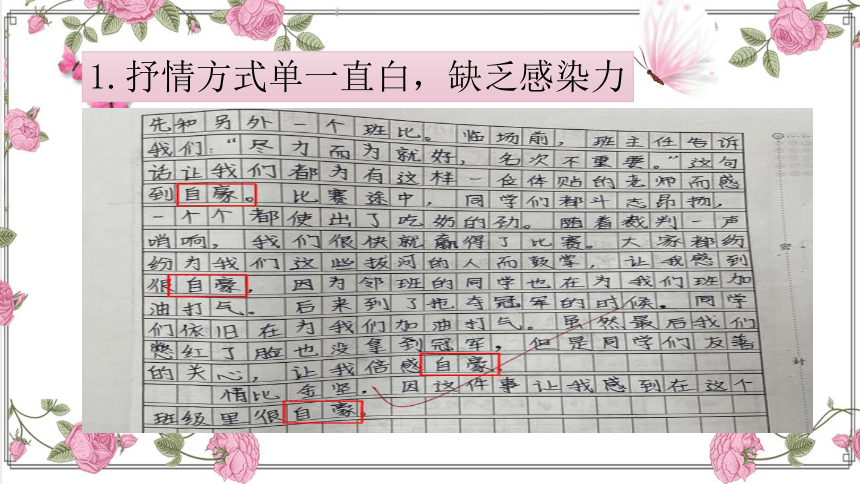 1.抒情方式单一直白，缺乏感染力
先和另外一个班比。临场前，班主任告诉
我们：“尽力而为就好，名次不重要。”这句
话让我们都为有这样一位体贴的老师而感
到自豪。比赛途中，同学们都斗志昂扬，
一个个都使出了吃奶的劲。随着裁判一声
哨响，我们很快就赢得了比赛。大家都纷
纷为我们这些拔河的人而鼓掌，让我感到
很自豪，因为邻班的同学也在为我们班加
油打气。后来到了拖夺冠军的时候。同学
们依旧在为我们加油打气。虽然最后我们
憋红了脸也没拿到冠军，但是同学们友善
的关心，让我倍感自豪
情比金坚。因这件事让我感到在这个
班级里很自豪。
密
封